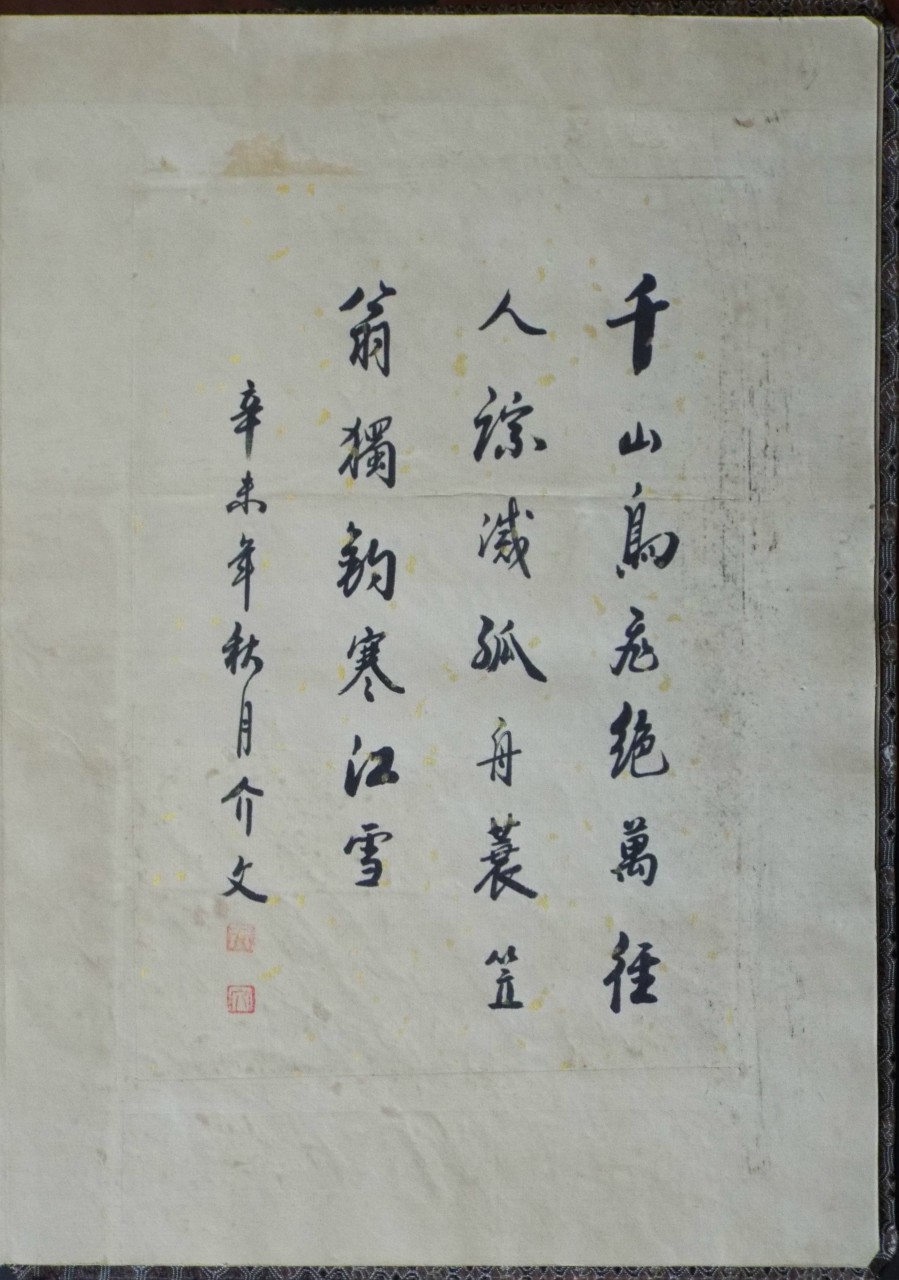 千山鳥飛絶萬徑
人踪滅孤舟蓑笠
翁獨釣寒江雪
辛未年秋月介文